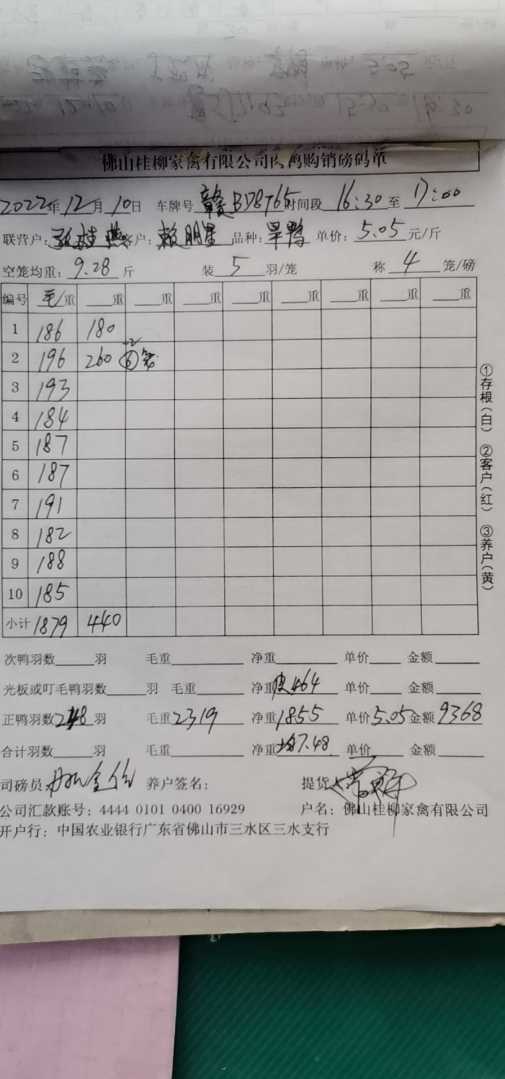 佛山桂柳家禽有限公司肉禽购销磅码单
2022年12月10日 车牌号 赣BD8765 时间段 16:30 至 17:00
联营户: 客户: 赖明星 品种: 旱鸭 单价: 5.05 元/斤
空笼均重: 9.28 斤 装 5 羽/笼 称 4 笼/磅
编号 毛重 重 重 重 重 重 重 重 重
1 186 180
2 196 260 ⑥笼
3 193
4 184
5 187
6 187
7 191
8 182
9 188
10 185
小计 1879 440
次鸭羽数 羽 毛重 净重 单价 金额
光板或叮毛鸭羽数 羽 毛重 净重皮464 单价 金额
正鸭羽数248羽 毛重2319 净重1855 单价5.05金额9368
合计羽数 羽 毛重 净重均7.48 单价 金额
司磅员 养户签名: 提货人
公司汇款账号: 4444 0101 0400 16929 户名: 佛山桂柳家禽有限公司
开户行: 中国农业银行广东省佛山市三水区三水支行
①存根(白) ②客户(红) ③养户(黄)